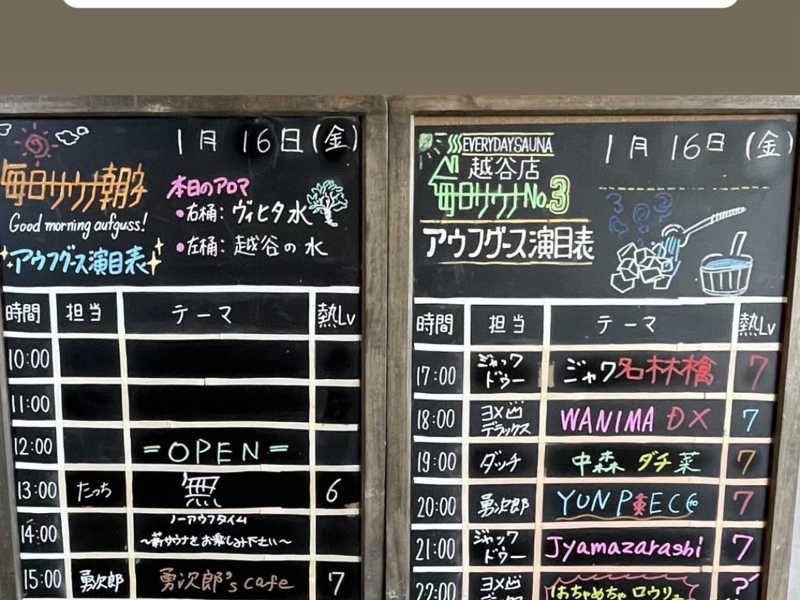 1月 16日(金)
毎日サウナ朝夕
Good morning aufguss!
アウフグース演目表
本日のアロマ
• 右桶: ヴィヒタ水
• 左桶: 越谷の水
時間 担当 テーマ 熱Lv
10:00
11:00
12:00 =OPEN=
13:00 たっち 無 6
14:00 ノーアウフタイム
〜薪サウナをお楽しみ下さい〜
15:00 勇次郎 勇次郎's cafe 7
EVERYDAY SAUNA 1月 16日(金)
越谷店
毎日サウナNo.3
アウフグース演目表
時間 担当 テーマ 熱Lv
17:00 ジャックドゥー ジャク名林檎 7
18:00 ヨメ山デラックス WANIMA DX 7
19:00 ダッチ 中森 ダチ菜 7
20:00 勇次郎 YUN PIECE 7
21:00 ジャックドゥー Jyamazarashi 7
22:00 ヨメ山 はちゃめちゃ ロウリュ ?